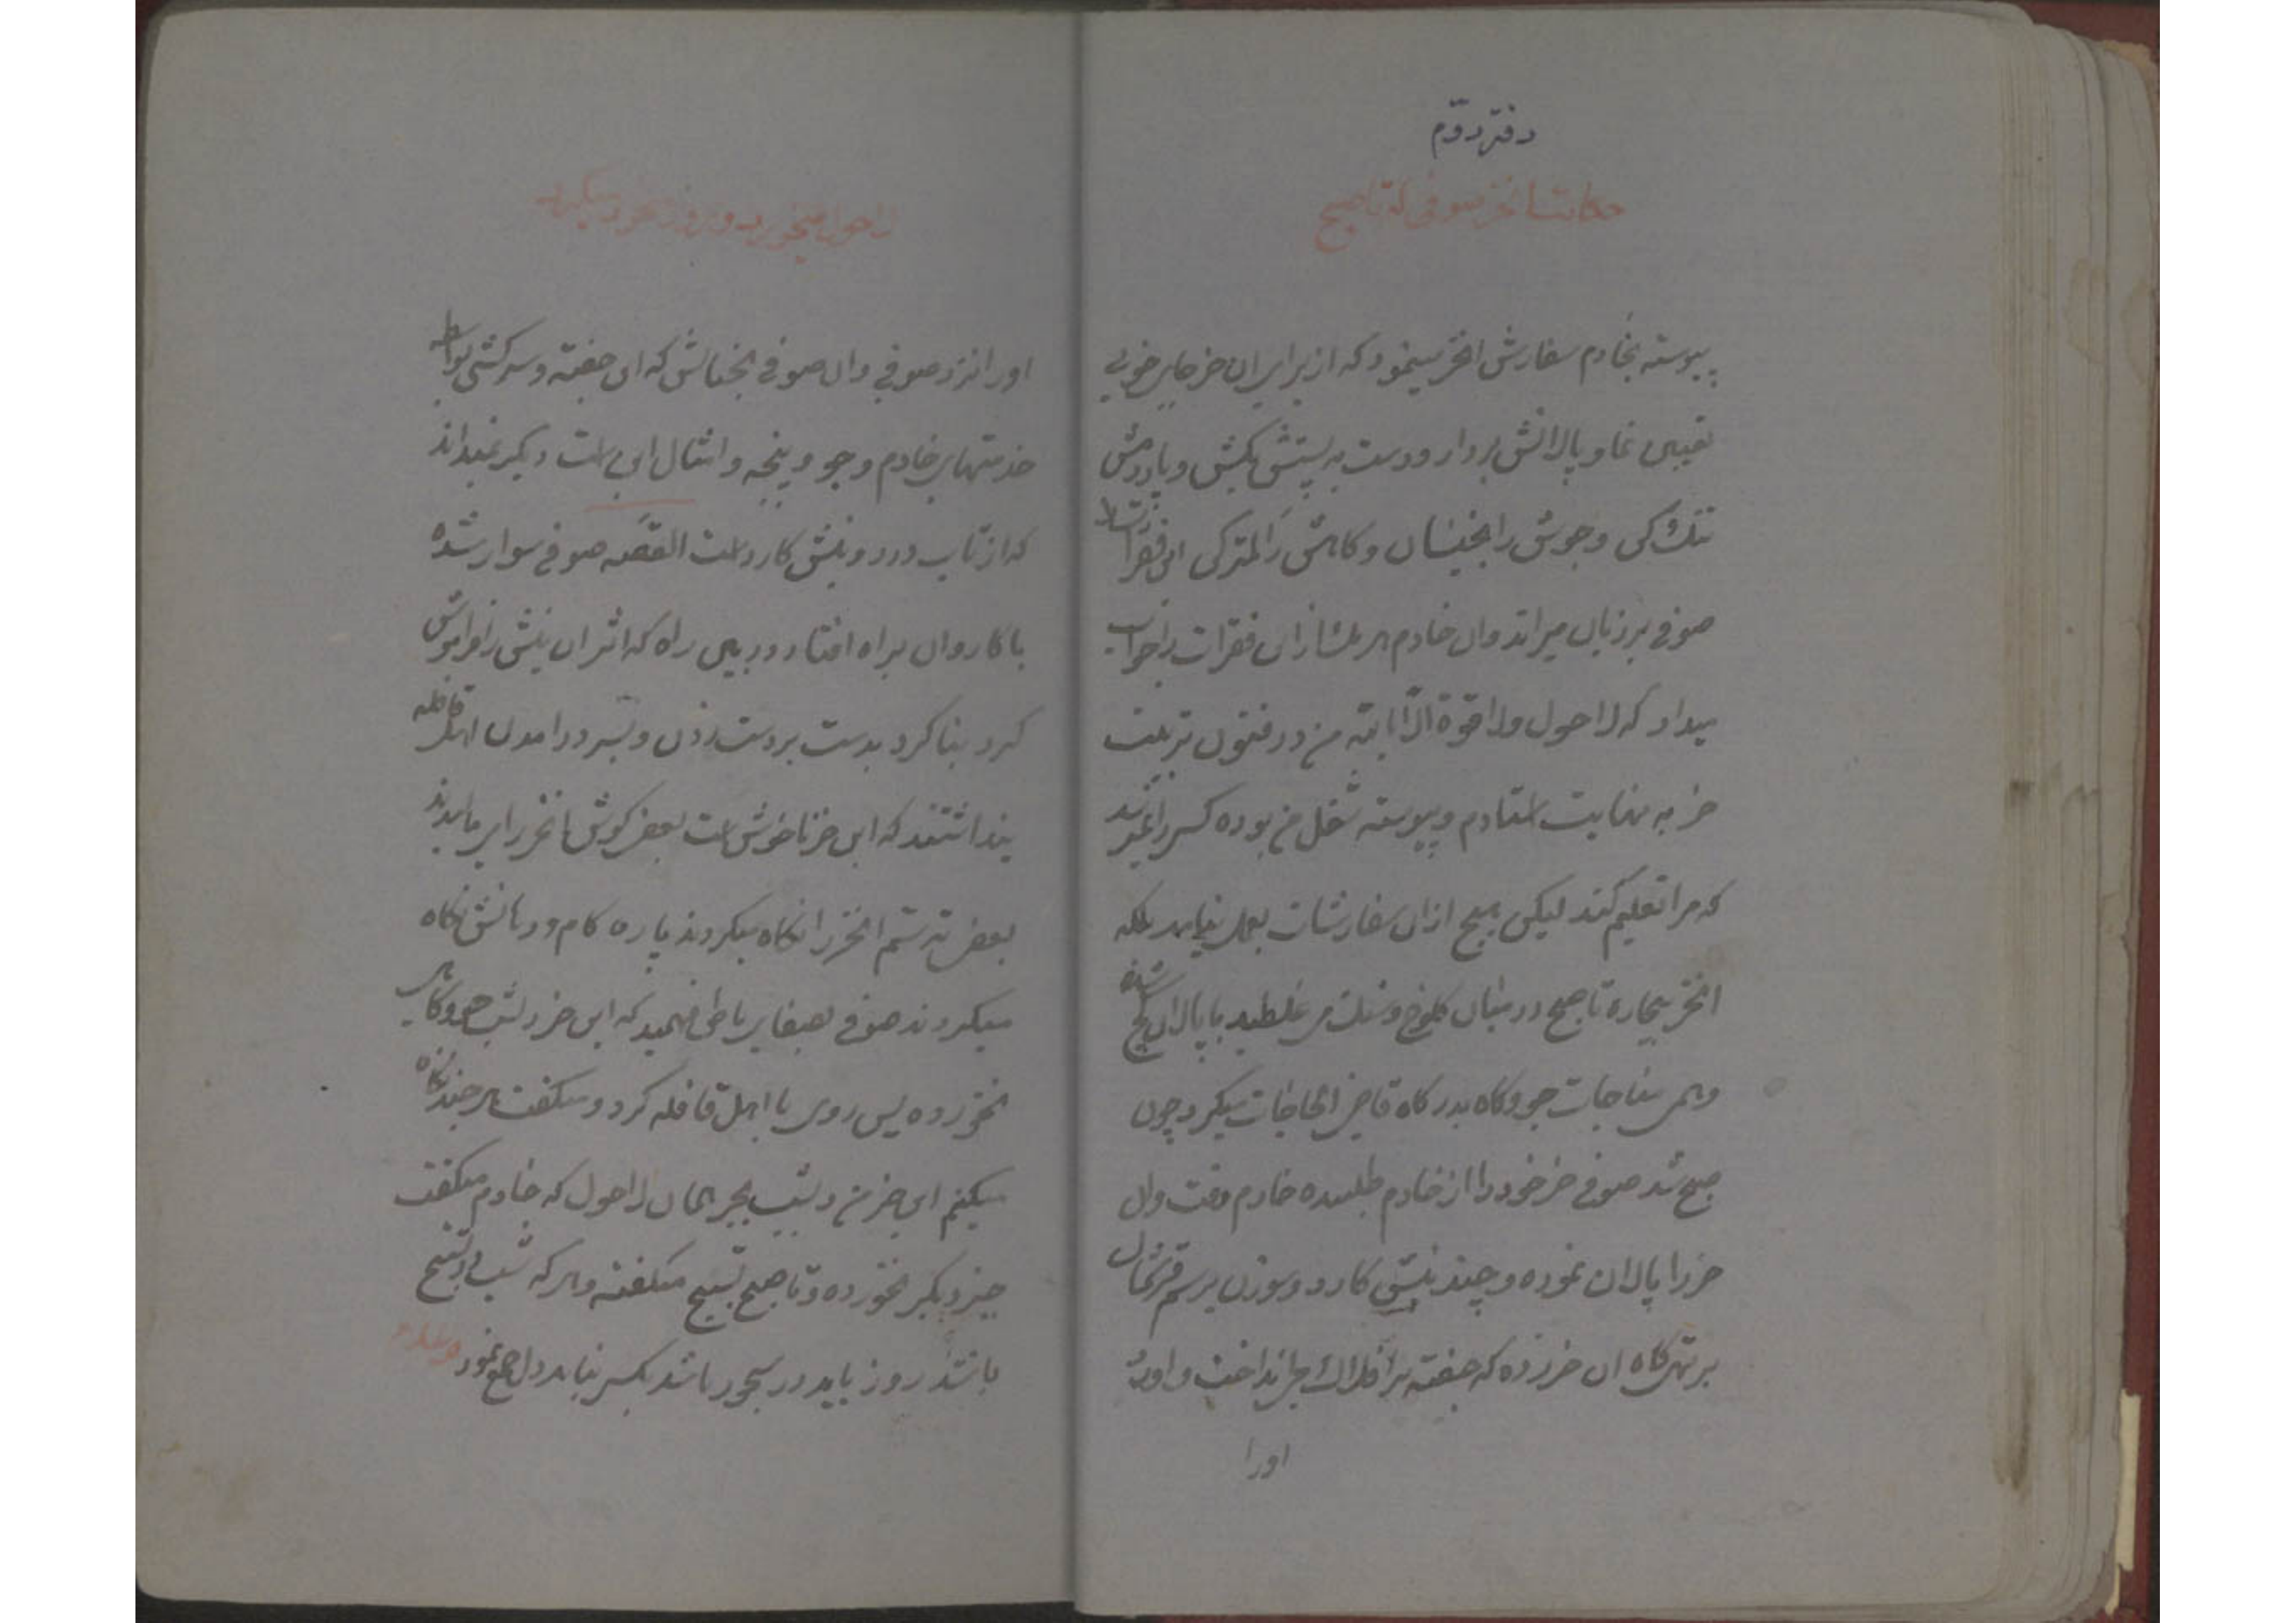 دفتر دوّم
حکایت انخر صوفی که تا صبح
پیوسته بخادم سفارش انخر مینمود که از برای ان خر جای خوبی
تعیین نما و پالانش بردار و دست به پشتش بکش و پاردمش
تنک کن و جوش را بخیسان و کاهش را کمتر کن این فقرات را
صوفی بر زبان میراند وان خادم هر یک از ان فقرات را جواب
میداد که لا حول ولا قوة الّا بالله من در فنون تربیت
خر به نهایت استادم و پیوسته شغل من بوده کسی را نمیرسد
که مرا تعلیم کند لیکن هیچ از ان سفارشات بعمل نیامد بلکه
انخر بیچاره تا صبح در میان کلوخ و سنک می غلطید با پالان کج شده
وهی مناجات جو وکاه بدرکاه قاضی الحاجات میکرد چون
صبح شد صوفی خر خود را از خادم طلبیده خادم رفت وان
خر را پالان نموده و چند نیش کارد و سوزن برسم خرفروشان
بر تهی کاه ان خر زده که جفته بر افلاک می انداخت و اورد
اورا
لا حول میخورد و روز سجود میکند
اورا نزد صوفی وان صوفی بخیالش که این جفته و سرکشی بواسطه
خدمتهای خادم و جو و ینجه و امثال این است دیکر نمیداند
که از تاب درد و نیش کارد است القصّه صوفی سوار شده
با کاروان براه افتاد در بین راه که اثر ان نیش را فراموش
کرد بنا کرد بدست بردست زدن و بسر در امدن اهل قافله
پنداشتند که این خر ناخوش است بعضی کوش انخر را می مالیدند
بعضی ته سُم انخر را نکاه میکردند پاره کام و دهانش نکاه
میکردند صوفی بصفای باطن فهمید که این خر دیشب جو وکاهی
نخورده پس روی با اهل قافله کرد و میکفت هر چند نکاه
میکنم این خر من دیشب بجز همان لا حول که خادم میکفت
چیز دیکر نخورده و تا صبح تسبیح میکفته و هر که شب در تسبیح
باشد روز باید در سجود باشد بکسی نباید دل جمع نمود والسلام